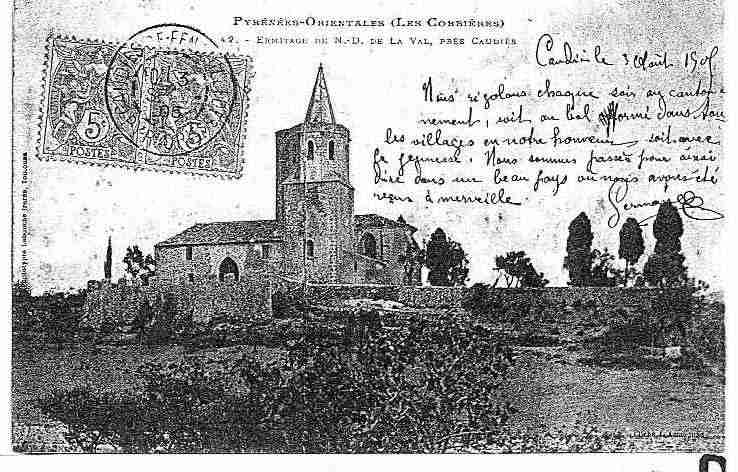 PYRÉNÉES-ORIENTALES (LES CORBIÈRES)
42. - ERMITAGE DE N.-D. DE LA VAL, PRÈS CAUDIÈS
Caudiès le 3 Août 190
Nous rigolons chaque soir au canton-
nement, soit au bal formé dans tou
les villages en notre honneur soit avec
la jeunesse. Nous sommes passés pour ainsi
dire dans un beau pays où nous avons été
reçus à merveille.
Germain
5 5
POSTES POSTES
Phototypie Labouche frères, Toulouse